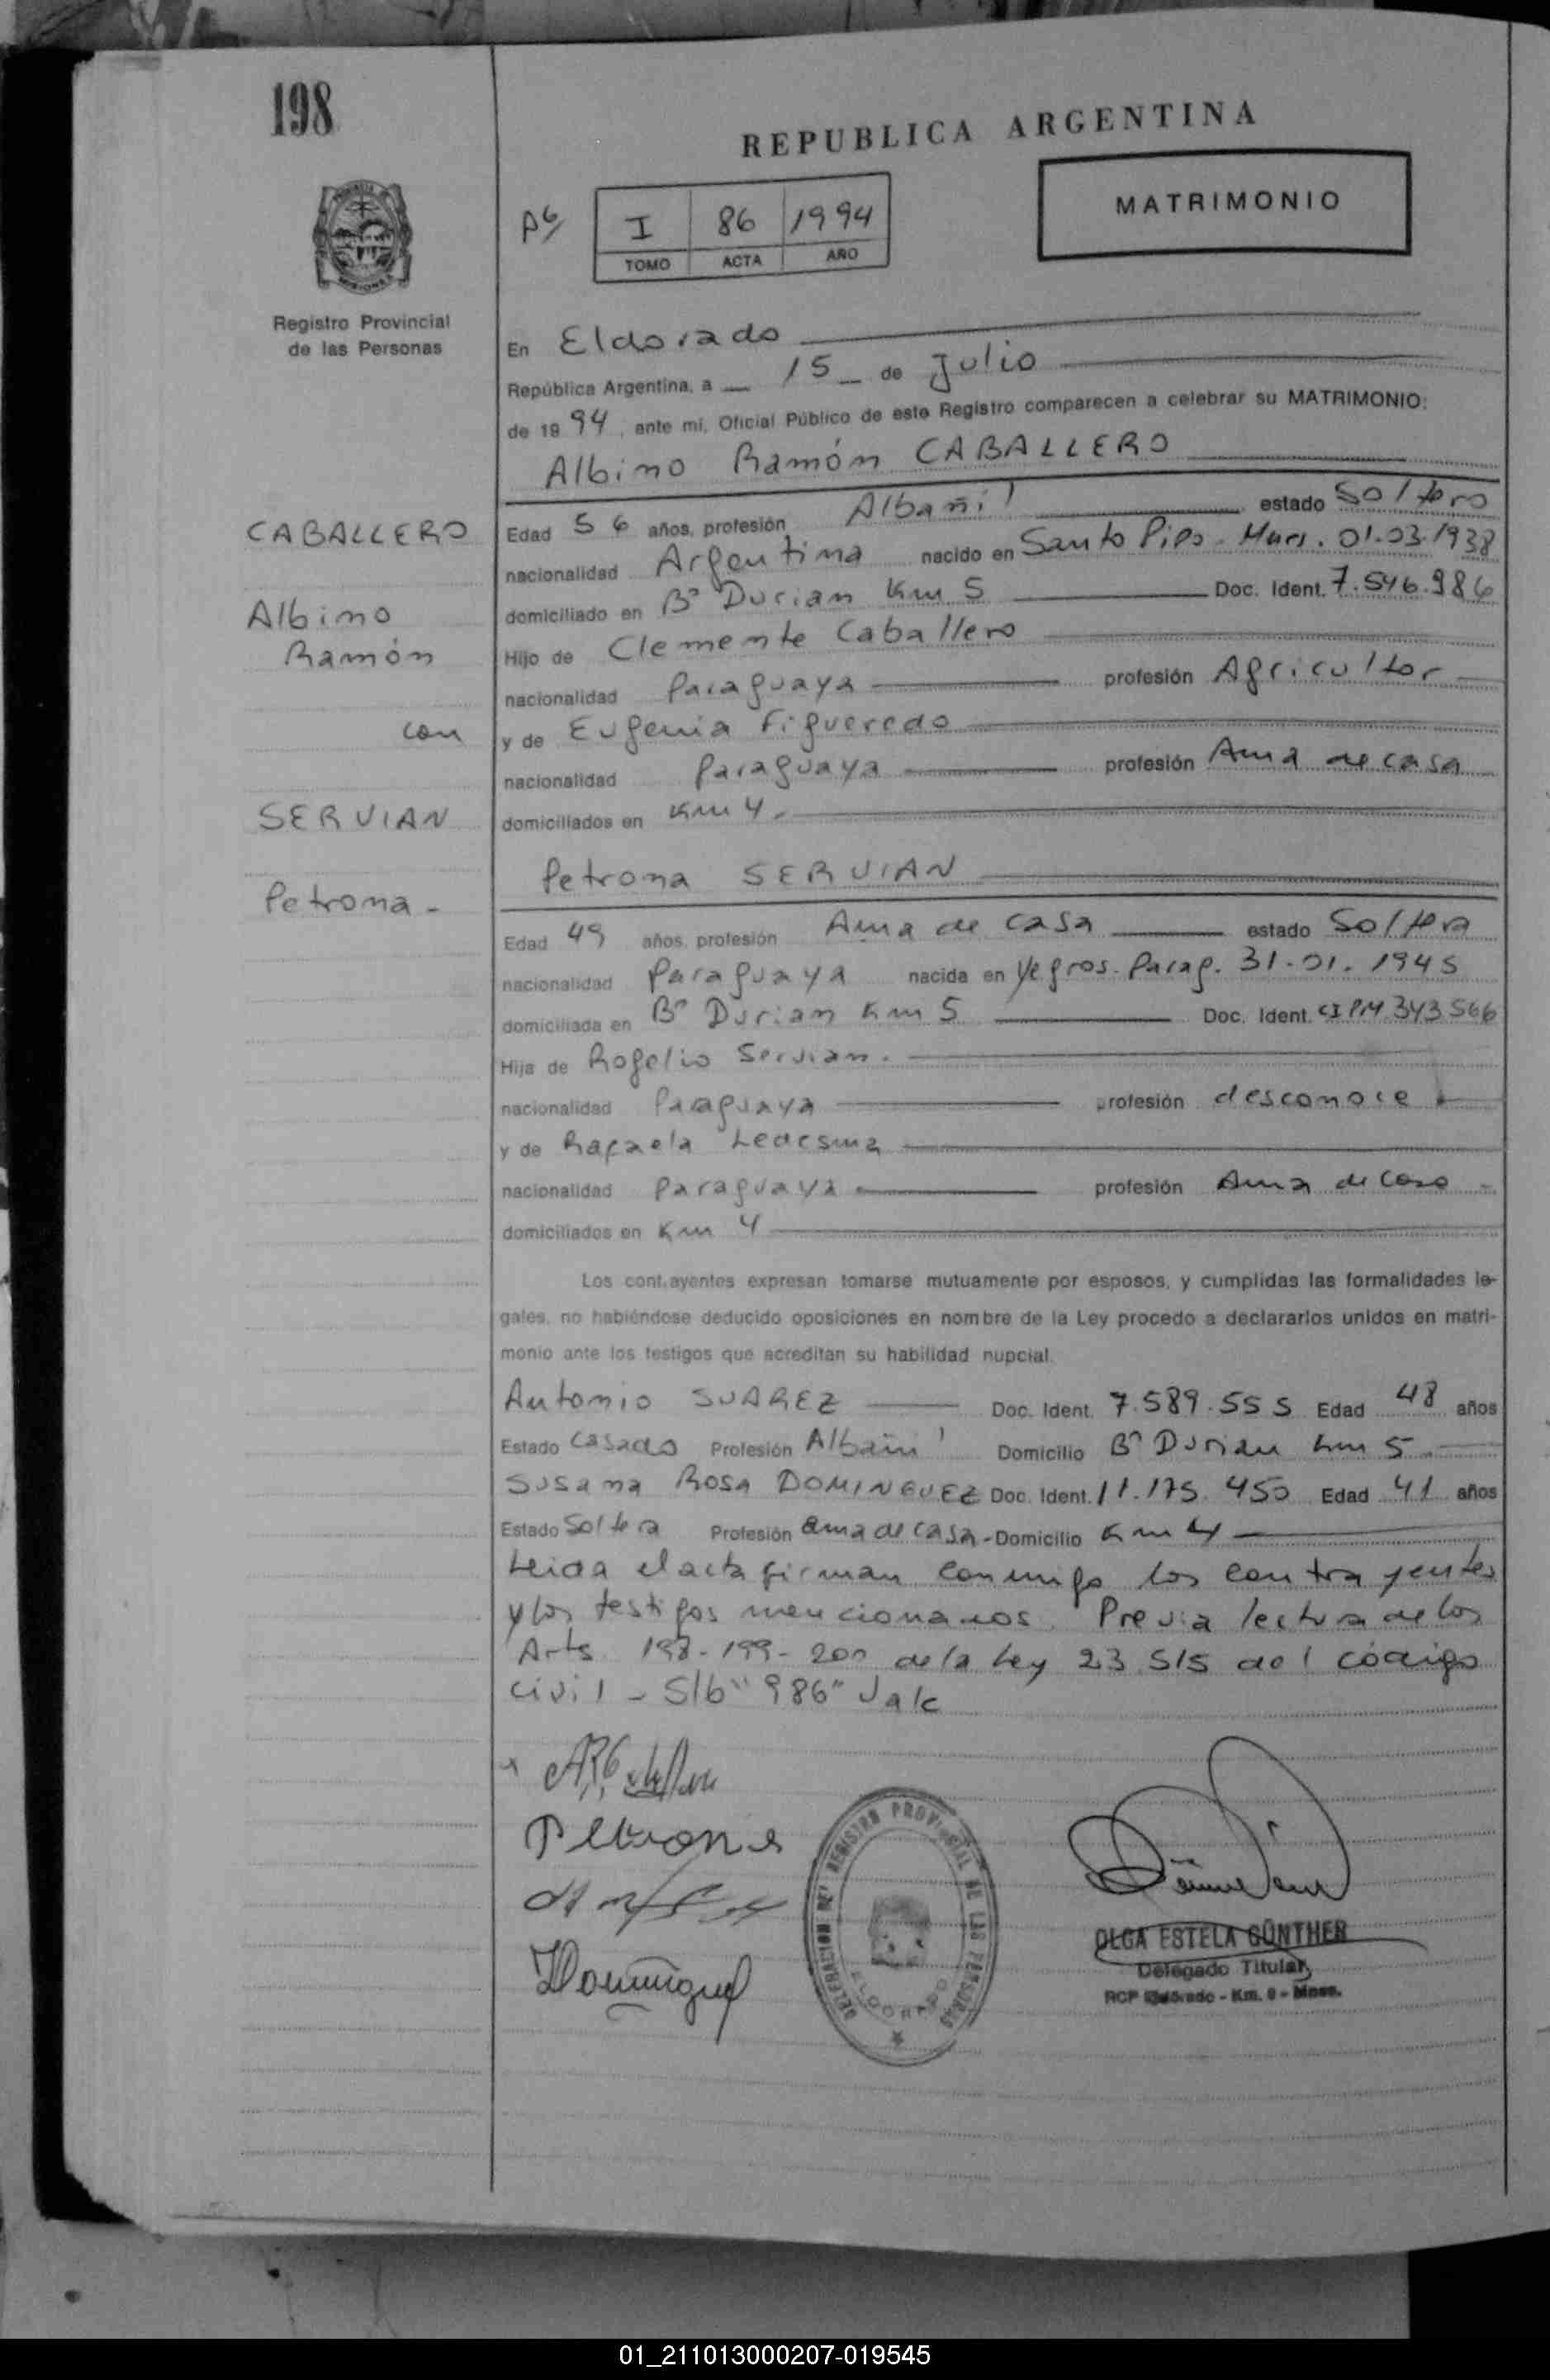 198
REPUBLICA ARGENTINA
MATRIMONIO
I 86 1994
TOMO ACTA AÑO
Registro Provincial
de las Personas
En Eldorado
República Argentina, a 15 de Julio
de 1994, ante mí, Oficial Público de este Registro comparecen a celebrar su MATRIMONIO:
Albino Ramón CABALLERO
CABALLERO
Albino
Ramón
con
SERVIAN
Petrona -
Edad 56 años, profesión Albañil estado Soltero
nacionalidad Argentina nacido en Santo Pipo. Mnes. 01.03.1938
domiciliado en Bº Durian Km 5 Doc. Ident. 7.546.986
Hijo de Clemente Caballero
nacionalidad Paraguaya profesión Agricultor
y de Eugenia Figueredo
nacionalidad Paraguaya profesión Ama de casa
domiciliados en Km 4.
Petrona SERVIAN
Edad 49 años, profesión Ama de casa estado Soltera
nacionalidad Paraguaya nacida en Yegros. Parag. 31-01-1945
domiciliada en Bº Durian Km 5 Doc. Ident. CIPM 343566
Hija de Rogelio Servian.
nacionalidad Paraguaya profesión desconoce
y de Rafaela Ledesma
nacionalidad Paraguaya profesión Ama de casa
domiciliados en Km 4
Los contrayentes expresan tomarse mutuamente por esposos, y cumplidas las formalidades le-
gales, no habiéndose deducido oposiciones en nombre de la Ley procedo a declararlos unidos en matri-
monio ante los testigos que acreditan su habilidad nupcial.
Antonio SUAREZ Doc. Ident. 7.589.555 Edad 48 años
Estado Casado Profesión Albañil Domicilio Bº Durian Km 5
Susana Rosa DOMINGUEZ Doc. Ident. 11.175.450 Edad 41 años
Estado Soltera Profesión ama de casa - Domicilio Km 4
Leida el acta firman conmigo los contrayentes
y los testigos mencionados. Previa lectura de los
Arts. 198-199-200 de la Ley 23.515 del código
civil - S/b "986" Vale
Petrona
DELEGACION DEL REGISTRO PROVINCIAL DE LAS PERSONAS
ELDORADO
OLGA ESTELA GÜNTHER
Delegado Titular
RCP Eldorado - Km. 9 - Mnes.
01_211013000207-019545